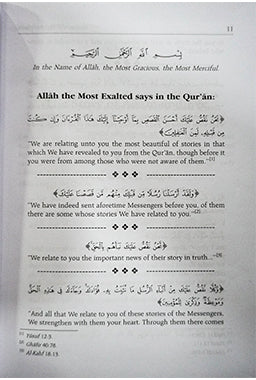 11
بِسْمِ اللَّهِ الرَّحْمَنِ الرَّحِيمِ
In the Name of Allâh, the Most Gracious, the Most Merciful.
Allâh the Most Exalted says in the Qur'ân:
﴿نَحْنُ نَقُصُّ عَلَيْكَ أَحْسَنَ الْقَصَصِ بِمَا أَوْحَيْنَا إِلَيْكَ هَذَا الْقُرْءَانَ وَإِن كُنتَ
مِن قَبْلِهِ لَمِنَ الْغَافِلِينَ﴾
"We are relating unto you the most beautiful of stories in that
which We have revealed to you from the Qur'ân, though before it
you were from among those who were not aware of them."[1]
﴿وَلَقَدْ أَرْسَلْنَا رُسُلًا مِّن قَبْلِكَ مِنْهُم مَّن قَصَصْنَا عَلَيْكَ﴾
"We have indeed sent aforetime Messengers before you, of them
there are some whose stories We have related to you."[2]
﴿نَحْنُ نَقُصُّ عَلَيْكَ نَبَأَهُم بِالْحَقِّ﴾
"We relate to you the important news of their story in truth..."[3]
﴿وَكُلًّا نَّقُصُّ عَلَيْكَ مِنْ أَنبَاءِ الرُّسُلِ مَا نُثَبِّتُ بِهِ فُؤَادَكَ وَجَاءَكَ فِي هَذِهِ الْحَقُّ
وَمَوْعِظَةٌ وَذِكْرَى لِلْمُؤْمِنِينَ﴾
"And all that We relate to you of these stories of the Messengers,
We strengthen with them your heart. Through them there comes
[1] Yûsuf 12:3.
[2] Ghâfir 40:78.
[3] Al-Kahf 18:13.